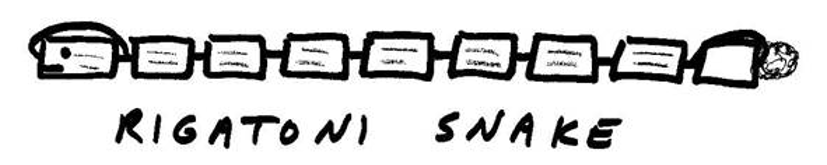 RIGATONI SNAKE